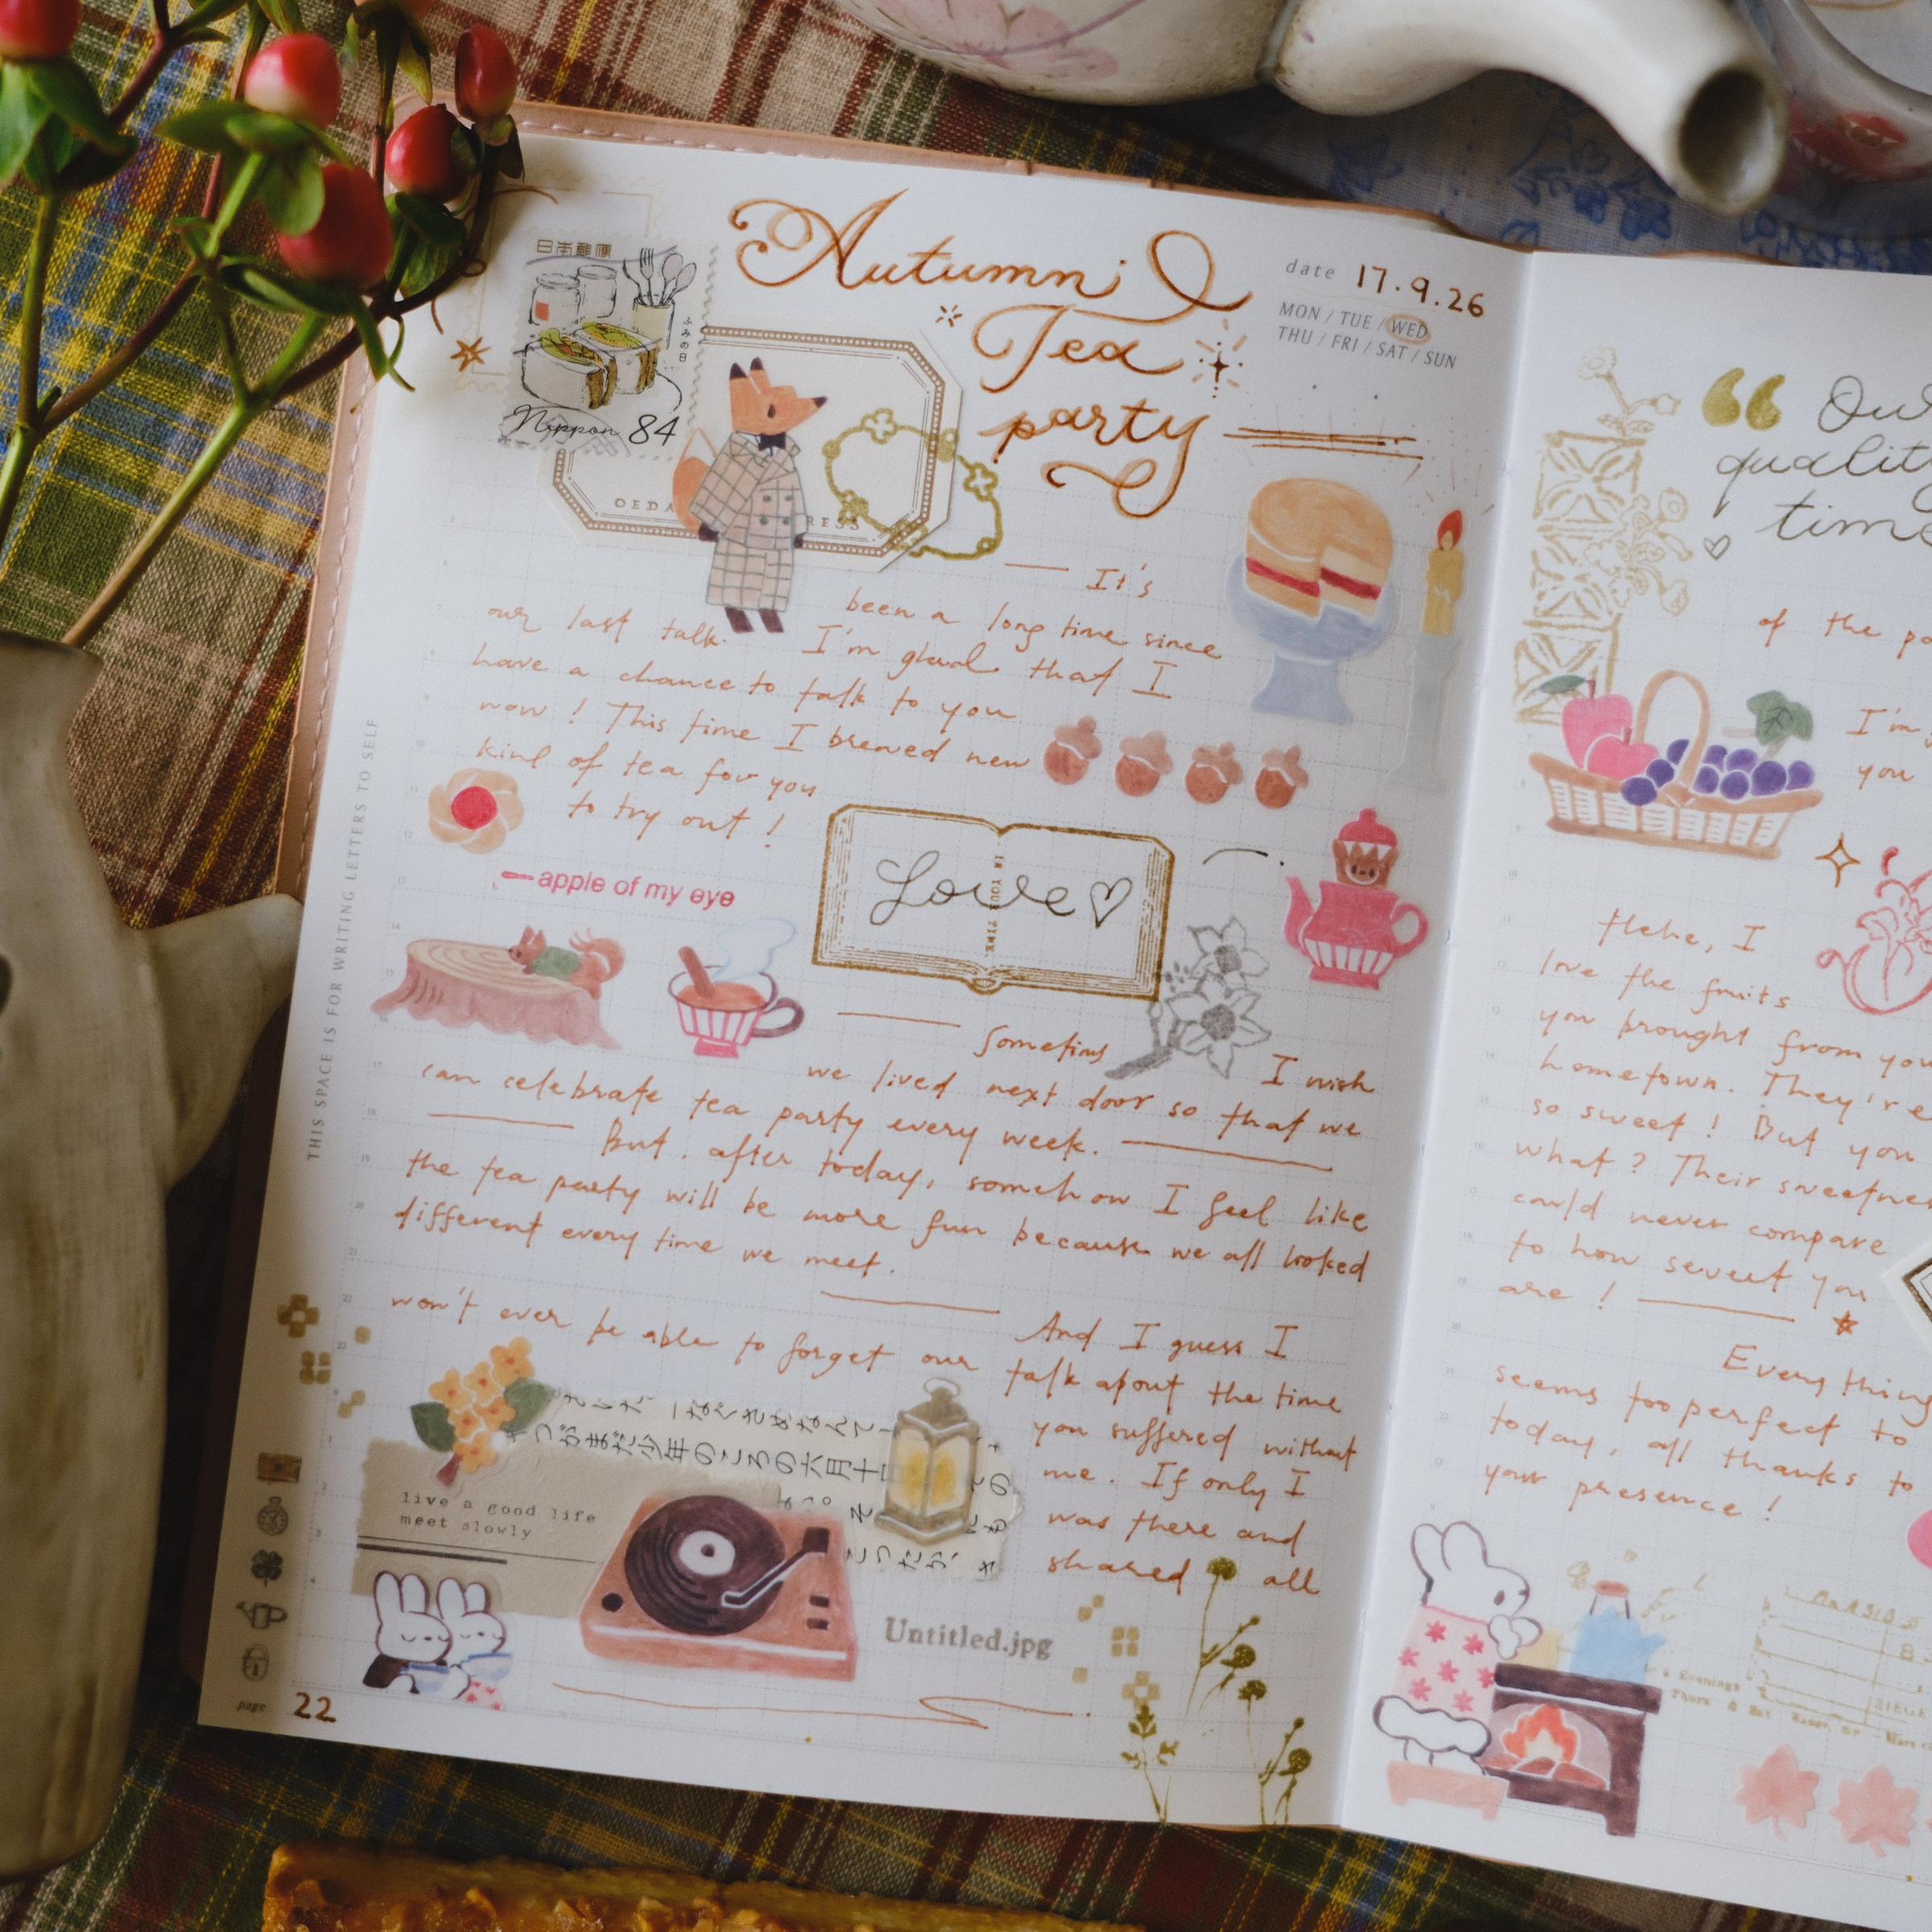 日本郵便
ふみの日
Nippon 84
Autumn
Tea
party
date 17.9.26
MON / TUE / WED
THU / FRI / SAT / SUN
It's
been a long time since
our last talk. I'm glad that I
have a chance to talk to you
now ! This time I brewed new
kind of tea for you
to try out !
apple of my eye
Love
IN YOUR TIME
Sometims I wish
we lived next door so that we
can celebrate tea party every week.
But . after today, somehow I feel like
the tea party will be more fun because we all looked
different every time we meet.
And I guess I
won't ever be able to forget our talk about the time
you suffered without
me. If only I
was there and
shared all
live a good life
meet slowly
Untitled.jpg
THIS SPACE IS FOR WRITING LETTERS TO SELF
page 22
“ Our
quality
time
of the
I'm
you
Hehe, I
love the fruits
you brought from your
hometown. They're
so sweet ! But you
what ? Their sweetness
could never compare
to how sweet you
are !
Everything
seems too perfect to
today, all thanks to
your presence !